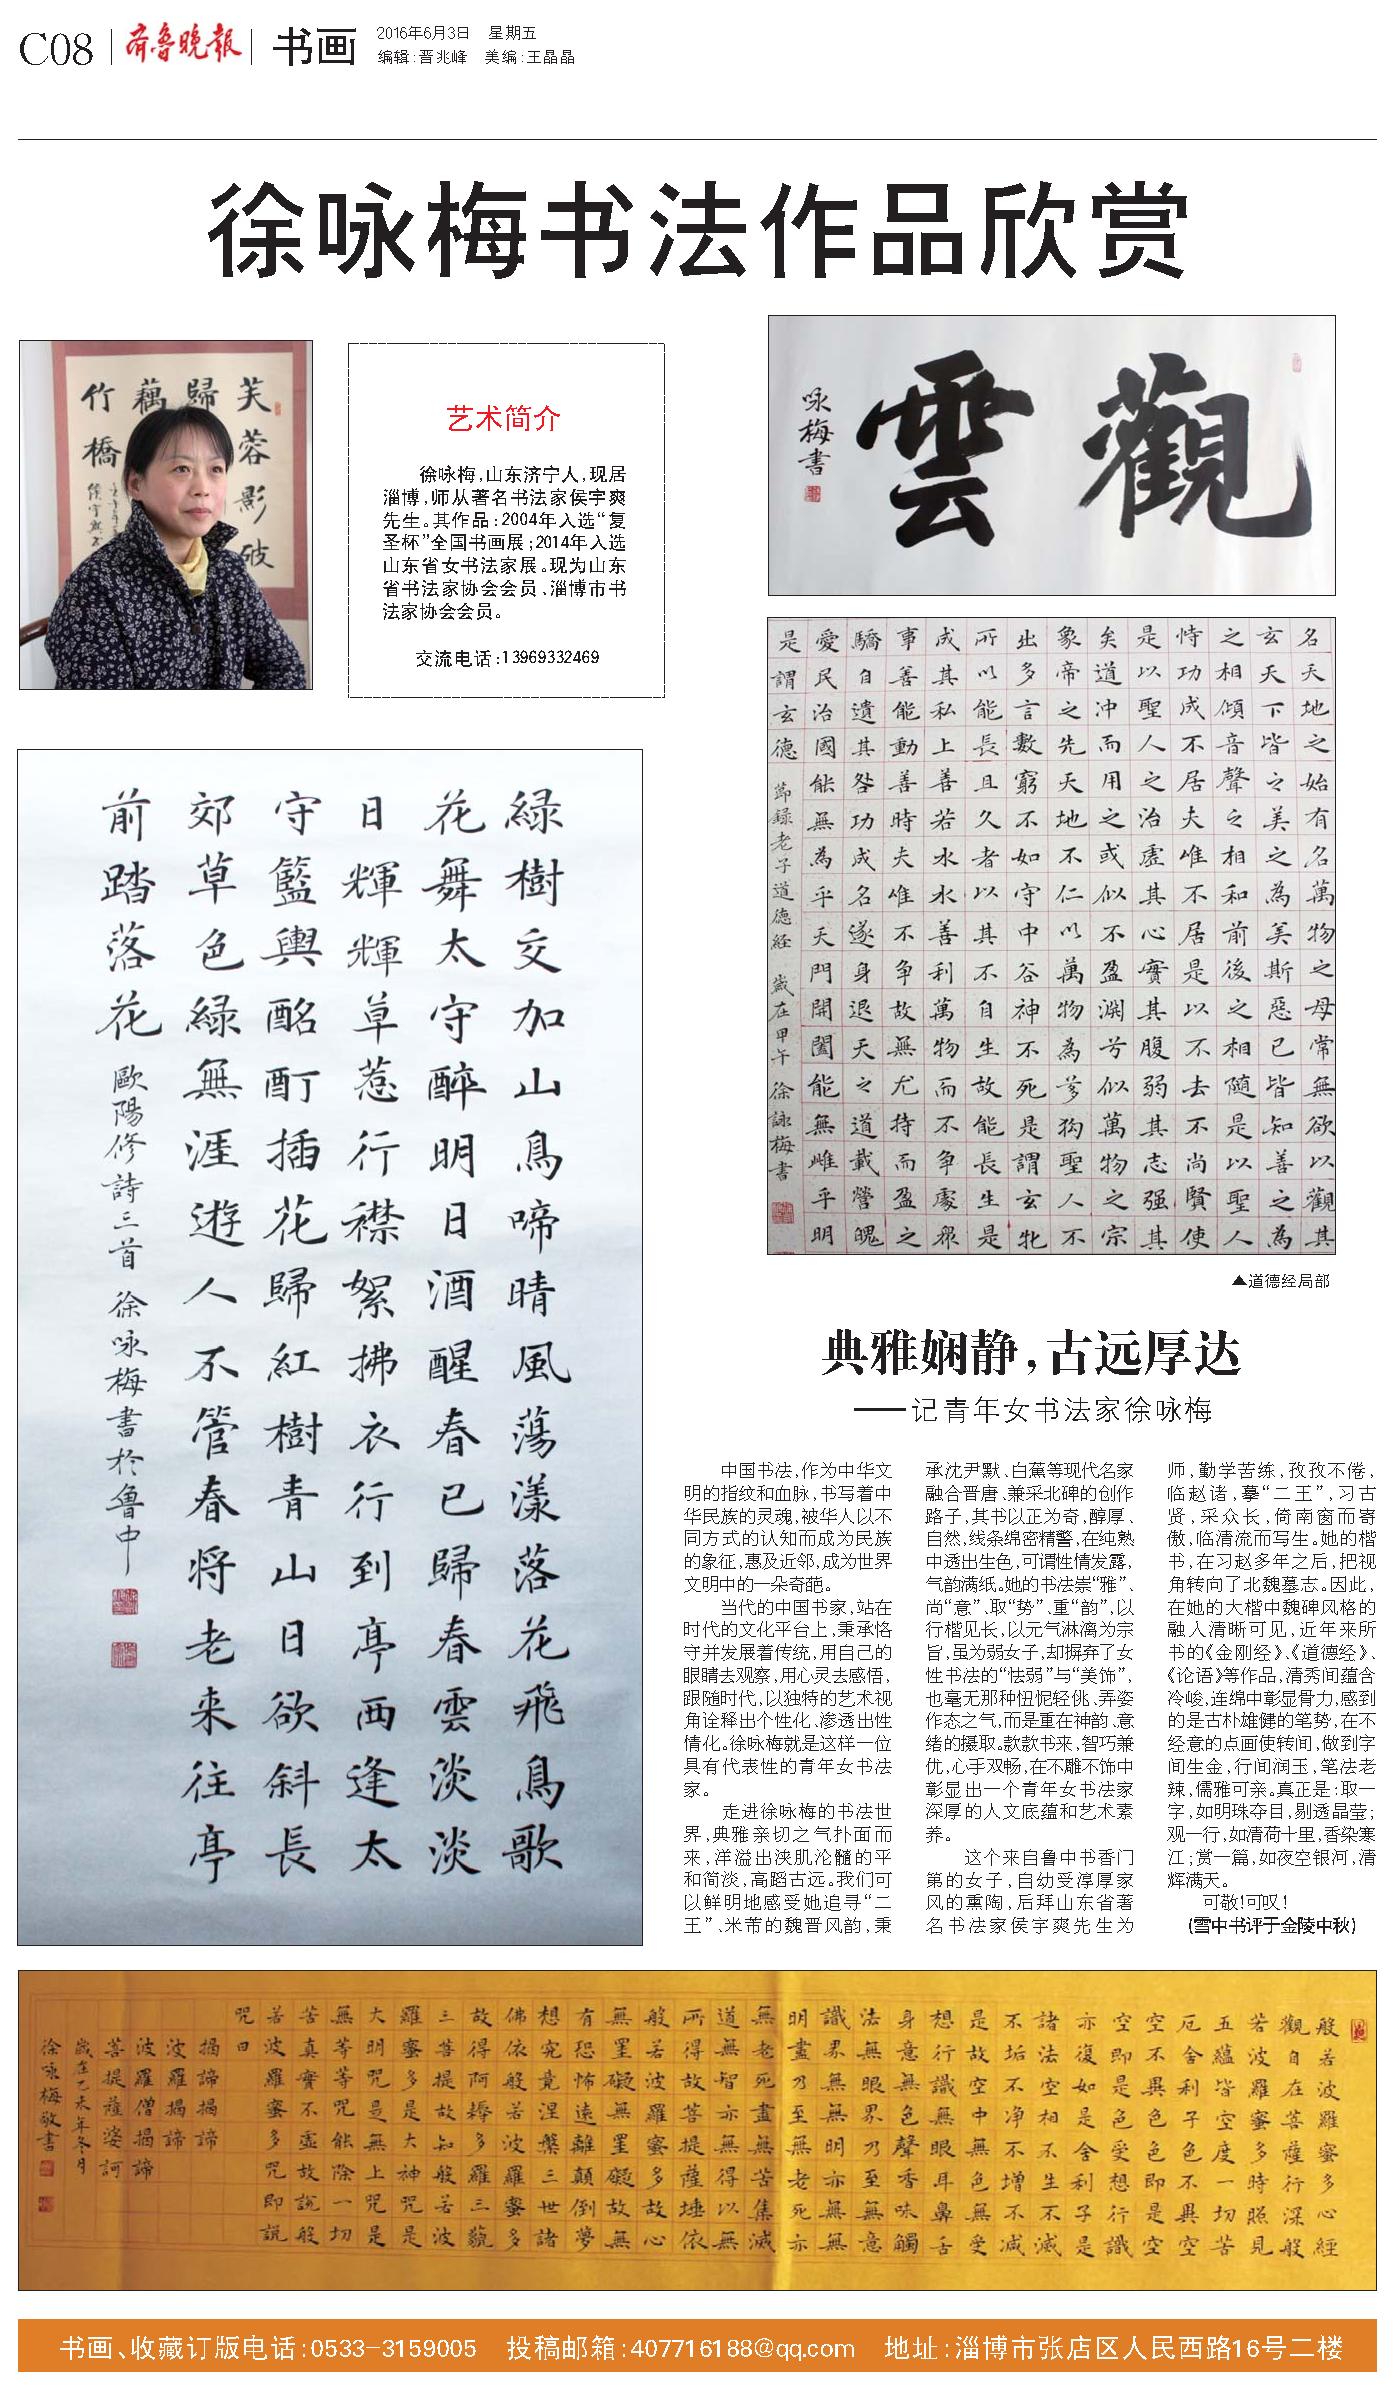 C08
齐鲁晚报
书画
2016年6月3日 星期五
编辑:晋兆峰 美编:王晶晶
徐咏梅书法作品欣赏
芙蓉影破
歸
藕
竹橋
艺术简介
徐咏梅,山东济宁人,现居
淄博,师从著名书法家侯宇爽
先生。其作品:2004年入选“复
圣杯”全国书画展;2014年入选
山东省女书法家展。现为山东
省书法家协会会员、淄博市书
法家协会会员。
交流电话:13969332469
觀雲
咏梅書
名天地之始有名萬物之母常無欲以觀其
玄天下皆之美之為美斯惡已皆知善之為
之相傾音聲之相和前後之相隨是以聖人
恃功成不居夫唯不居是以不去不尚賢使
是以聖人之治虛其心實其腹弱其志强其
矣道冲而用之或似不盈淵兮似萬物之宗
象帝之先天地不仁以萬物為芻狗聖人不
出多言數窮不如守中谷神不死是謂玄牝
所以能長且久者以其不自生故能長生是
成其私上善若水水善利萬物而不争處衆
事善能動善時夫唯不争故無尤持而盈之
驕自遺其咎功成名遂身退天之道載營魄
愛民治國能無為乎天門開闔能無雌乎明
是謂玄德
節錄老子道德経 歲在甲午 徐詠梅書
▲道德经局部
緑樹交加山鳥啼晴風蕩漾落花飛鳥歌
花舞太守醉明日酒醒春已歸春雲淡淡
日輝輝草惹行襟絮拂衣行到亭西逢太
守籃輿酩酊插花歸紅樹青山日欲斜長
郊草色緑無涯遊人不管春将老来往亭
前踏落花
歐陽修詩三首 徐咏梅書於魯中
典雅娴静,古远厚达
——记青年女书法家徐咏梅
中国书法,作为中华文
明的指纹和血脉,书写着中
华民族的灵魂,被华人以不
同方式的认知而成为民族
的象征,惠及近邻,成为世界
文明中的一朵奇葩。
当代的中国书家,站在
时代的文化平台上,秉承恪
守并发展着传统,用自己的
眼睛去观察,用心灵去感悟,
跟随时代,以独特的艺术视
角诠释出个性化、渗透出性
情化。徐咏梅就是这样一位
具有代表性的青年女书法
家。
走进徐咏梅的书法世
界,典雅亲切之气扑面而
来,洋溢出浃肌沦髓的平
和简淡,高蹈古远。我们可
以鲜明地感受她追寻“二
王”、米芾的魏晋风韵,秉
承沈尹默、白蕉等现代名家
融合晋唐、兼采北碑的创作
路子,其书以正为奇,醇厚、
自然,线条绵密精警,在纯熟
中透出生色,可谓性情发露,
气韵满纸。她的书法崇“雅”、
尚“意”、取“势”、重“韵”,以
行楷见长,以元气淋漓为宗
旨,虽为弱女子,却摒弃了女
性书法的“怯弱”与“美饰”,
也毫无那种忸怩轻佻、弄姿
作态之气,而是重在神韵、意
绪的摄取。款款书来,智巧兼
优,心手双畅,在不雕不饰中
彰显出一个青年女书法家
深厚的人文底蕴和艺术素
养。
这个来自鲁中书香门
第的女子,自幼受淳厚家
风的熏陶,后拜山东省著
名书法家侯宇爽先生为
师,勤学苦练,孜孜不倦,
临赵诸,摹“二王”,习古
贤,采众长,倚南窗而寄
傲,临清流而写生。她的楷
书,在习赵多年之后,把视
角转向了北魏墓志。因此,
在她的大楷中魏碑风格的
融入清晰可见,近年来所
书的《金刚经》、《道德经》、
《论语》等作品,清秀间蕴含
冷峻,连绵中彰显骨力,感到
的是古朴雄健的笔势,在不
经意的点画使转间,做到字
间生金,行间润玉,笔法老
辣,儒雅可亲。真正是:取一
字,如明珠夺目,剔透晶莹;
观一行,如清荷十里,香染寒
江;赏一篇,如夜空银河,清
辉满天。
可敬!可叹!
(雪中书评于金陵中秋)
般若波羅蜜多心經
觀自在菩薩行深般
若波羅蜜多時照見
五蘊皆空度一切苦
厄舍利子色不異空
空不異色色即是空
空即是色受想行識
亦復如是舍利子是
諸法空相不生不滅
不垢不净不增不减
是故空中無色無受
想行識無眼耳鼻舌
身意無色聲香味觸
法無眼界乃至無意
識界無無明亦無無
明盡乃至無老死亦
無老死盡無苦集滅
道無智亦無得以無
所得故菩提薩埵依
般若波羅蜜多故心
無罣礙無罣礙故無
有恐怖遠離顛倒夢
想究竟涅槃三世諸
佛依般若波羅蜜多
故得阿耨多羅三藐
三菩提故知般若波
羅蜜多是大神咒是
大明咒是無上咒是
無等等咒能除一切
苦真實不虛故說般
若波羅蜜多咒即說
咒曰
揭諦揭諦
波羅揭諦
波羅僧揭諦
菩提薩婆訶
歲在乙未年冬月
徐咏梅敬書
书画、收藏订版电话:0533-3159005 投稿邮箱:407716188@qq.com 地址:淄博市张店区人民西路16号二楼